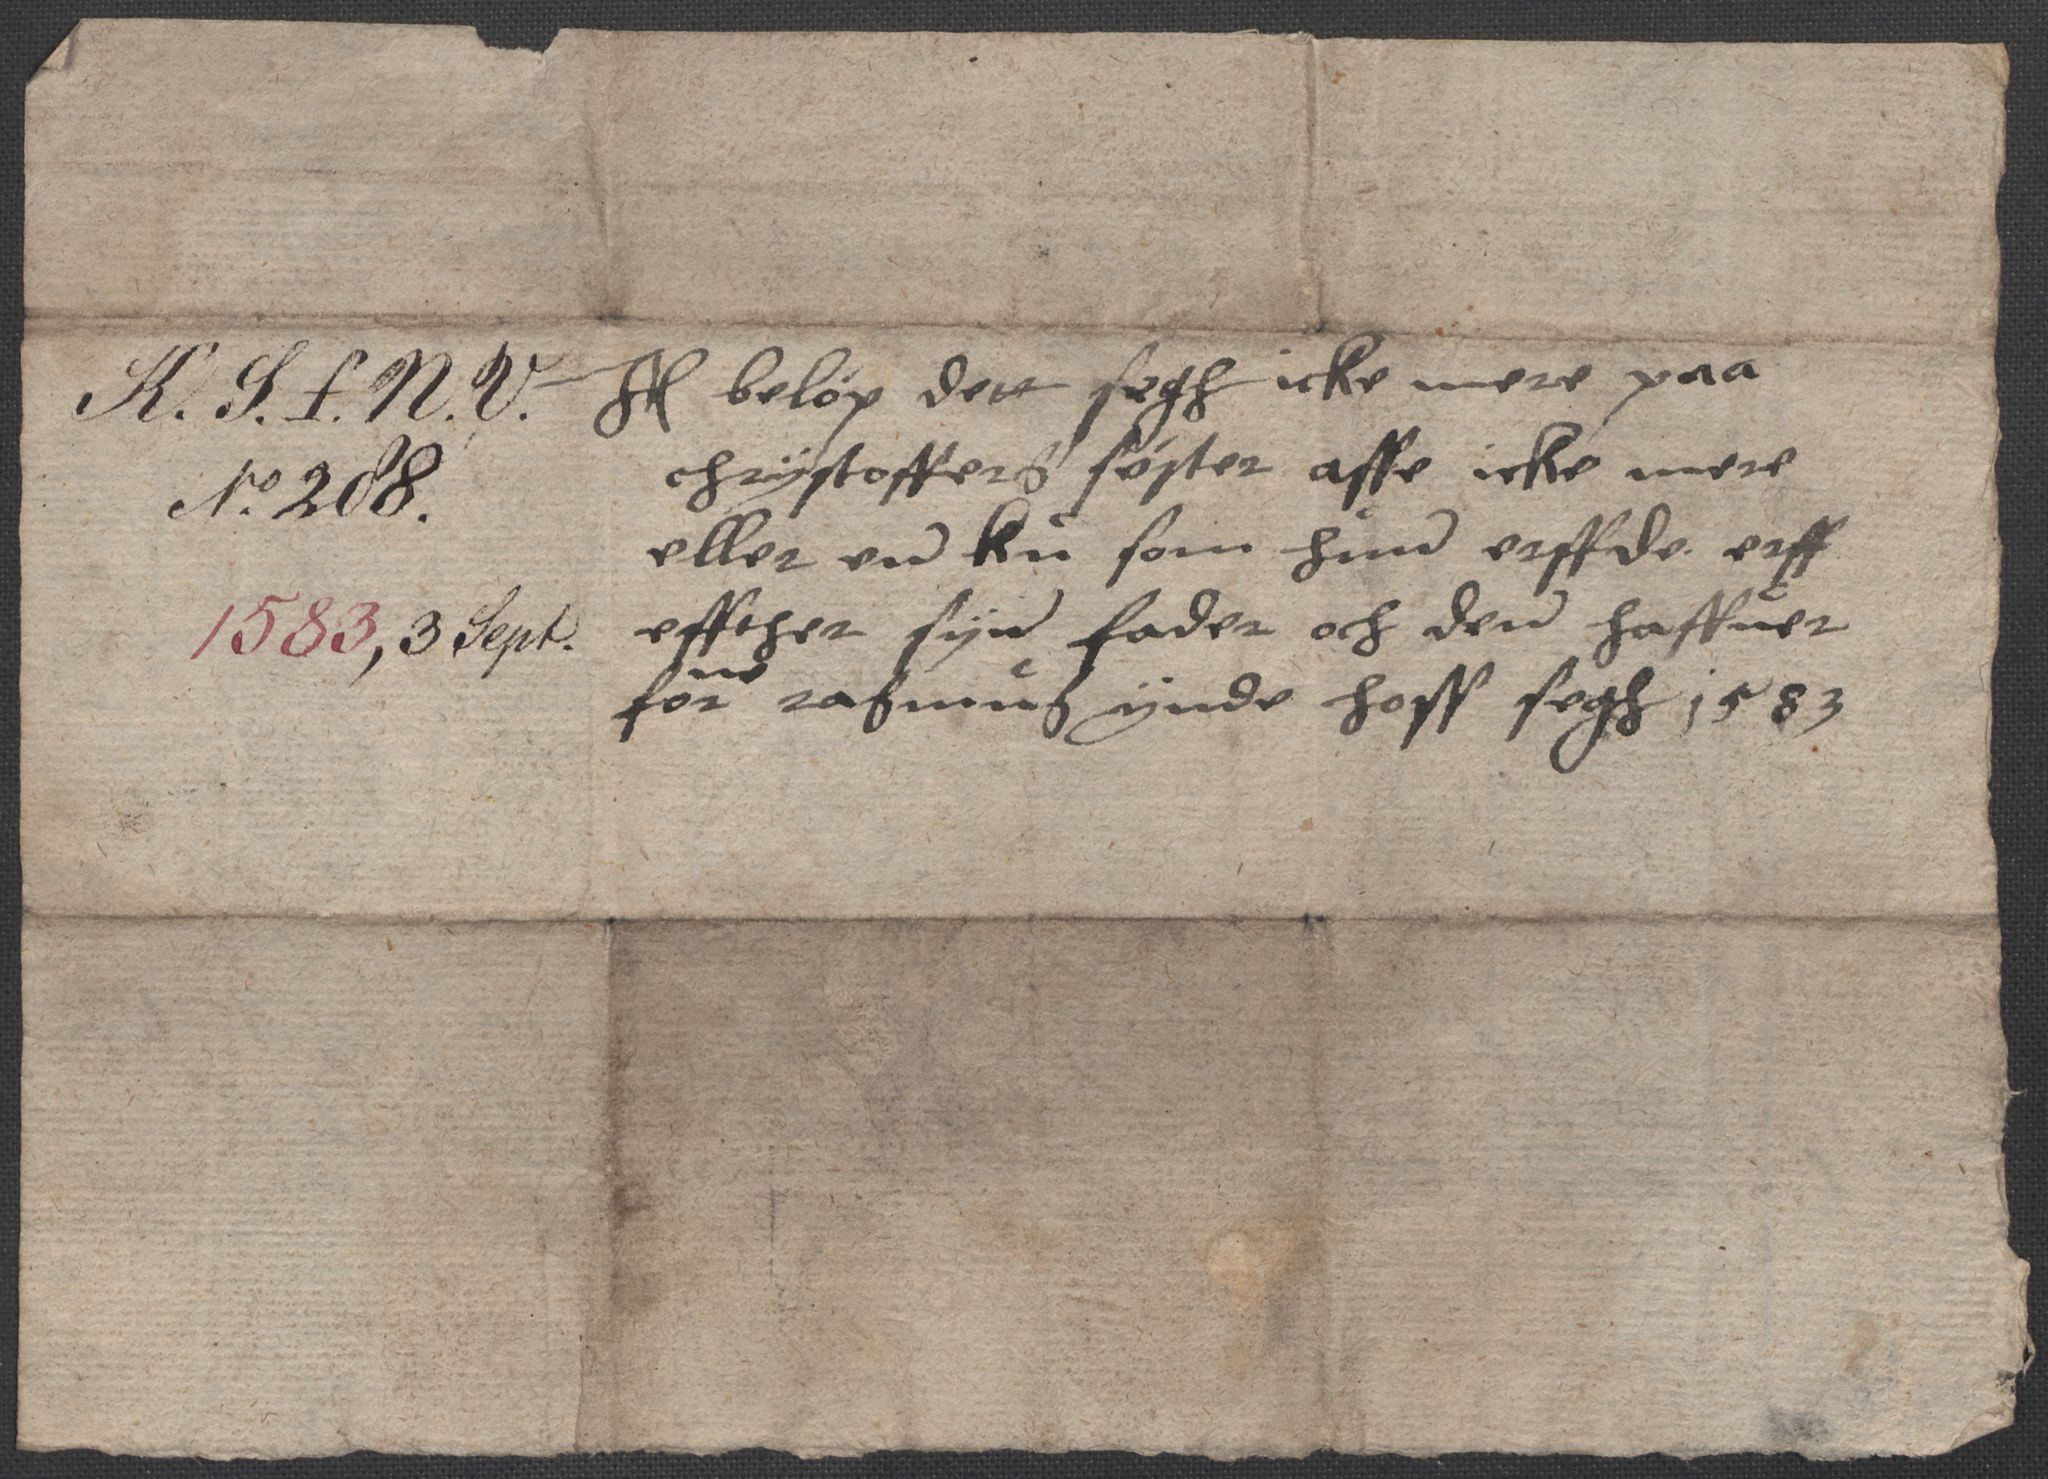 K. S. f. N. V.
No 288.
1583, 3 Sept.
beløp dett segh icke mere paa
chrÿstoffers søster affe icke mere
eller en ku som hun erffde erff
effther sÿn fader och den haffuer
forne rasmus ÿnde hoss segh 1583